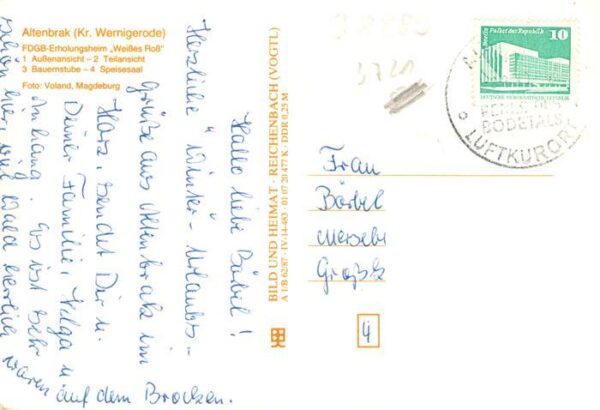 Altenbrak (Kr. Wernigerode)
FDGB-Erholungsheim „Weißes Roß"
1 Außenansicht – 2 Teilansicht
3 Bauernstube – 4 Speisesaal
Foto: Voland, Magdeburg
Hallo liebe Bärbel!
Herzliche Winter-Urlaubs-
grüße aus Altenbrak im
Harz, sendet Dir u.
Deiner Familie, Helga u
Anhang. Es ist sehr
schön hier, viel Wald herrlich
waren auf dem Brocken.
BILD UND HEIMAT · REICHENBACH (VOGTL)
A 1/B 62/87 · IV-14-483 · 01 07 20 477 K · DDR 0,25 M
10
Berlin Palast der Republik
DEUTSCHE DEMOKRATISCHE REPUBLIK
BODETALS
LUFTKURORT
Frau
Bärbel
4